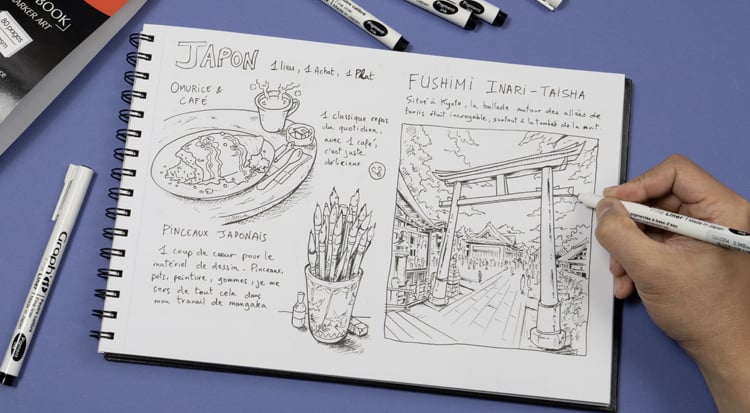 BOOK
MARKER ART
80 pages
JAPON 1 lieu, 1 Achat, 1 Plat
OMURICE &
CAFÉ
1 classique repas
du quotidien,
avec 1 café,
c'est juste
délicieux
PINCEAUX JAPONAIS
1 coup de cœur pour le
matériel de dessin. Pinceaux,
pots, peinture, gommes, je me
sers de tout cela dans
mon travail de mangaka
FUSHIMI INARI-TAISHA
Situé à Kyoto, la ballade autour des allées de
toriis était incroyable, surtout à la tombée de la nuit.
Graph'it
Liner
Liner